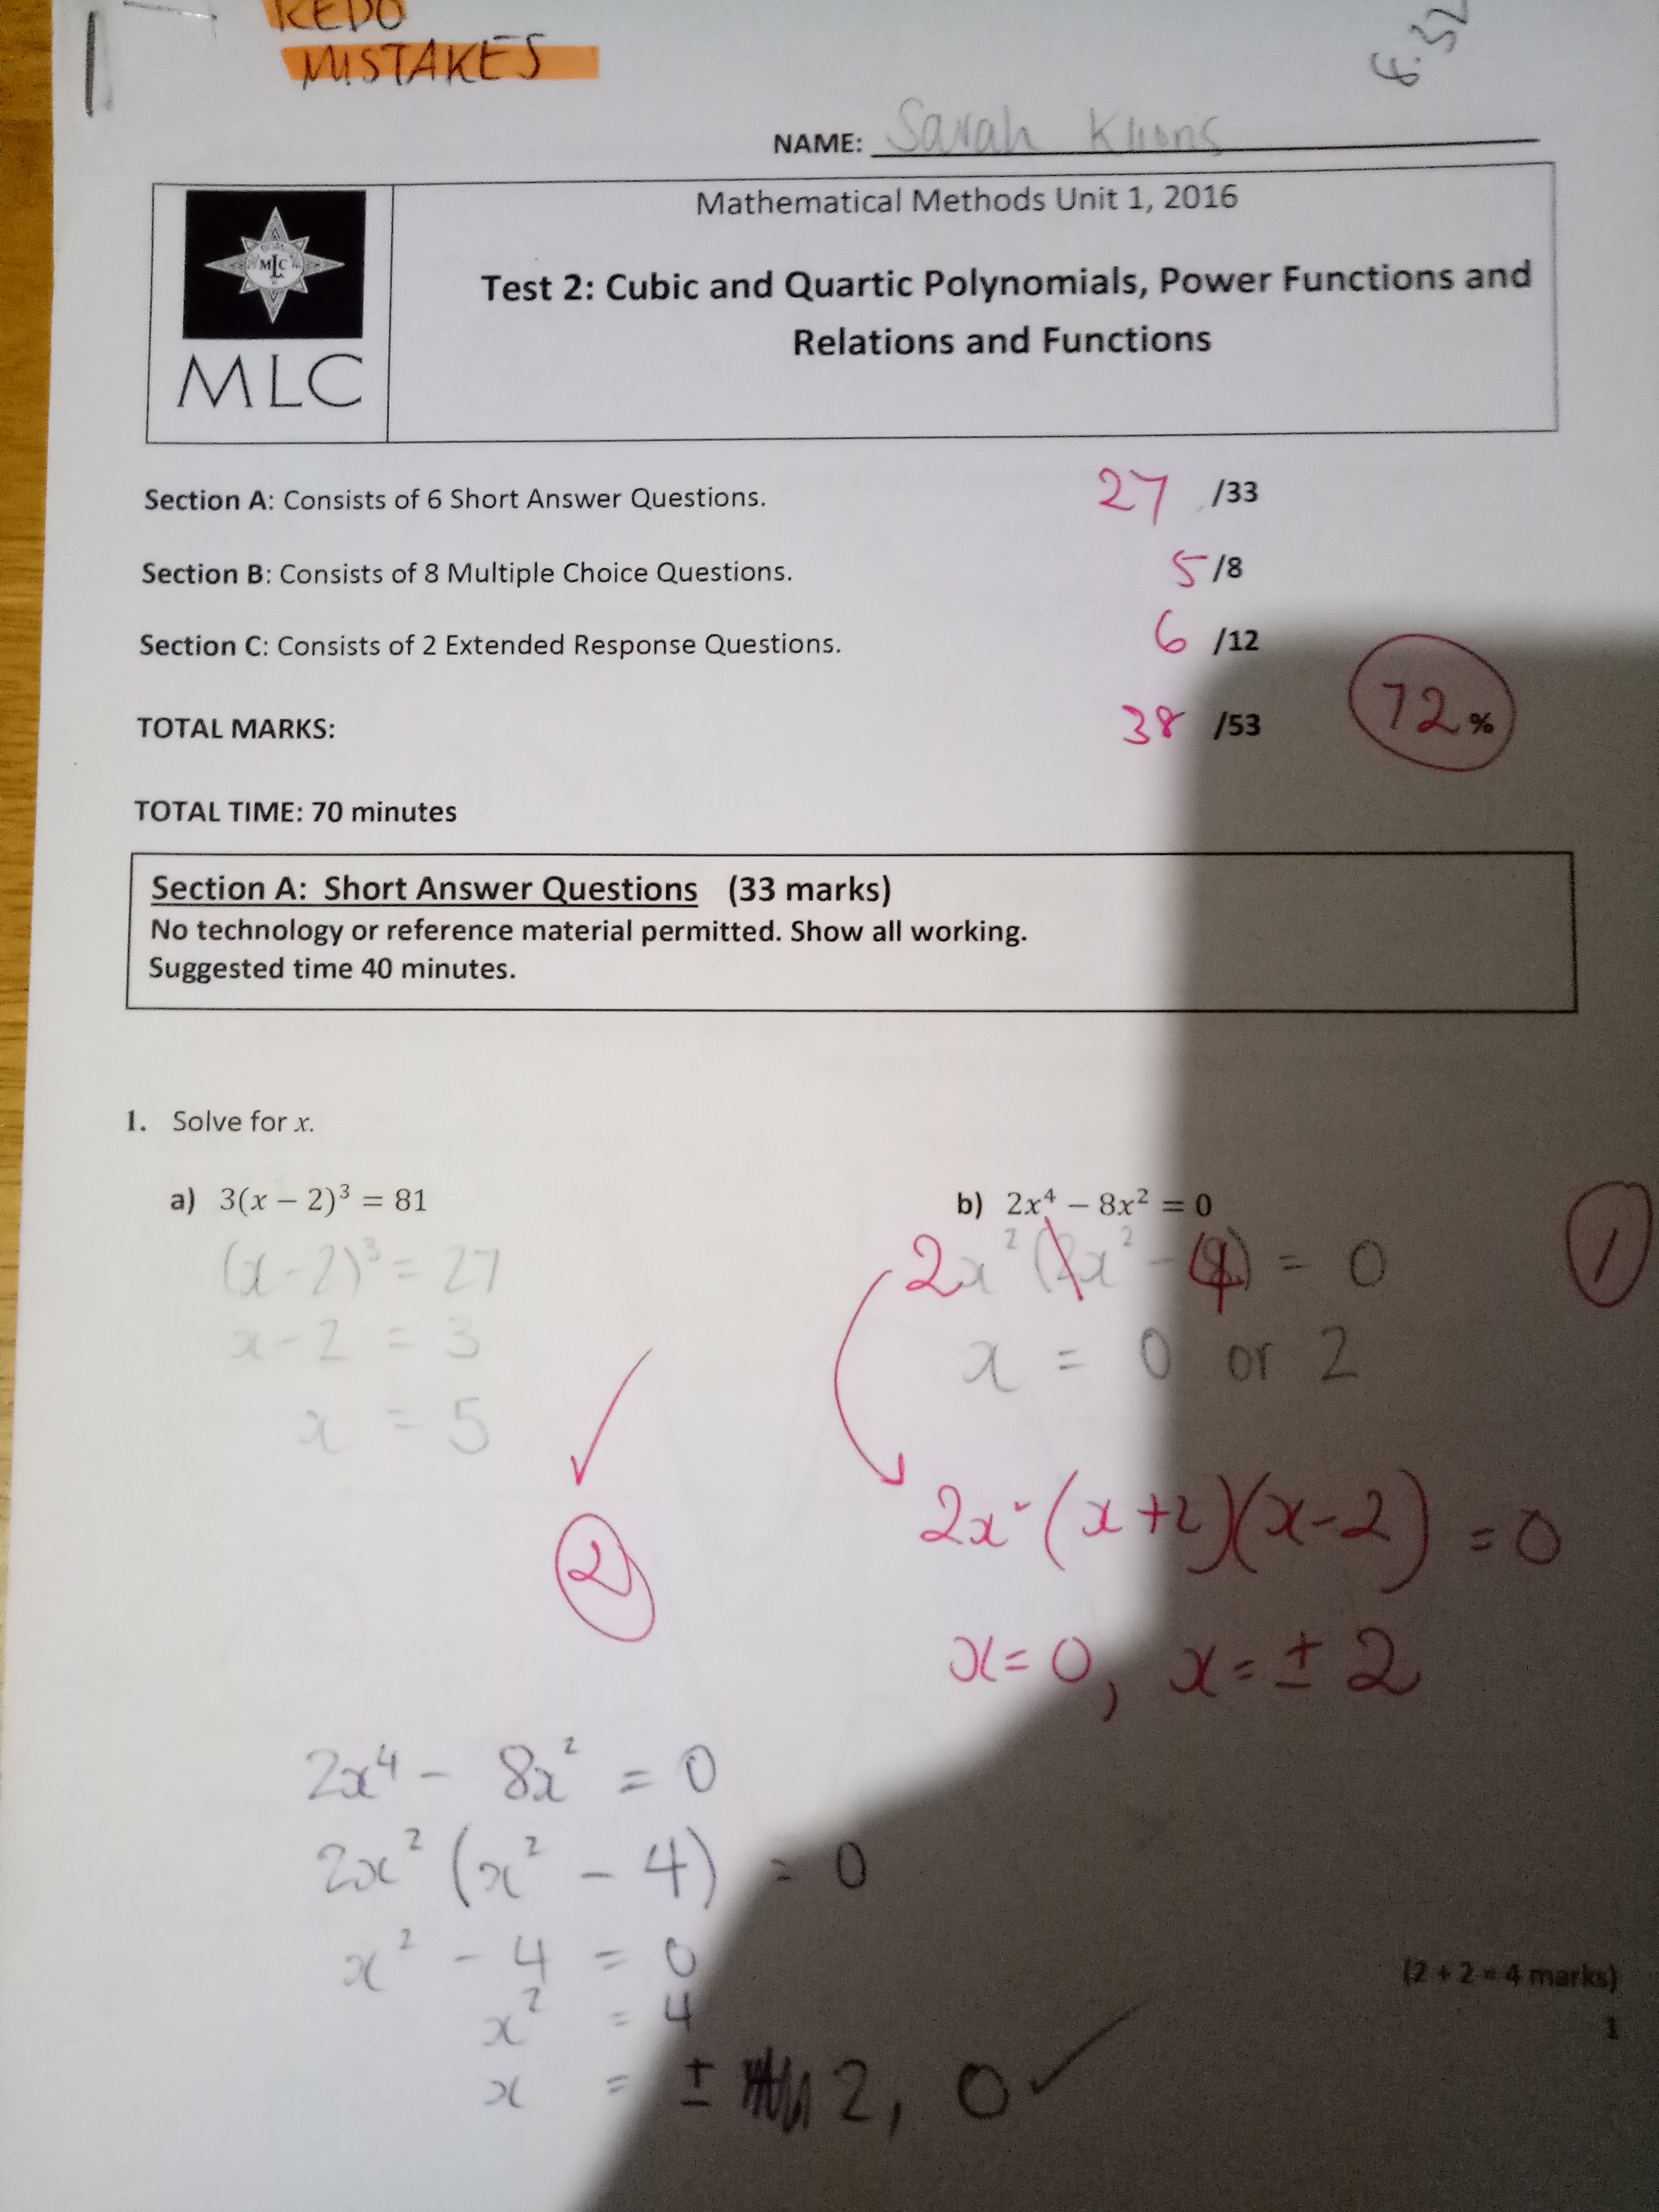 REDO
MISTAKES
6.32
NAME: Sarah
MLC
MLC
Mathematical Methods Unit 1, 2016
Test 2: Cubic and Quartic Polynomials, Power Functions and
Relations and Functions
Section A: Consists of 6 Short Answer Questions. 27 /33
Section B: Consists of 8 Multiple Choice Questions. 5 /8
Section C: Consists of 2 Extended Response Questions. 6 /12
TOTAL MARKS: 38 /53 72 %
TOTAL TIME: 70 minutes
Section A: Short Answer Questions (33 marks)
No technology or reference material permitted. Show all working.
Suggested time 40 minutes.
1. Solve for x.
a) 3(x − 2)³ = 81
(x-2)³ = 27
x-2 = 3
x = 5
2
b) 2x⁴ − 8x² = 0
2x² (x² - 4) = 0
1
x = 0 or 2
2x² (x+2)(x-2) = 0
x=0, x=±2
2x⁴ - 8x² = 0
2x² (x² - 4) = 0
x² - 4 = 0
x² = 4
x = ± 2, 0
(2 + 2 = 4 marks)
1